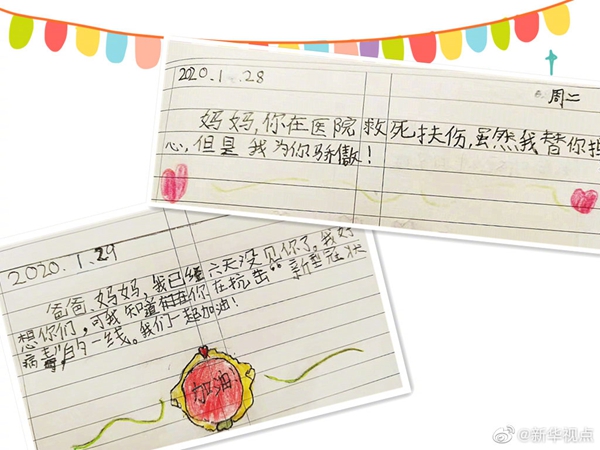 2020.1.28
周二
妈妈,你在医院救死扶伤,虽然我替你担
心,但是我为你骄傲!
2020.1.29
爸爸、妈妈,我已经六天没见你了。我好
想你们,可我知道你在抗击“新型冠状
病毒”的一线。我们一起加油!
加油
@新华视点